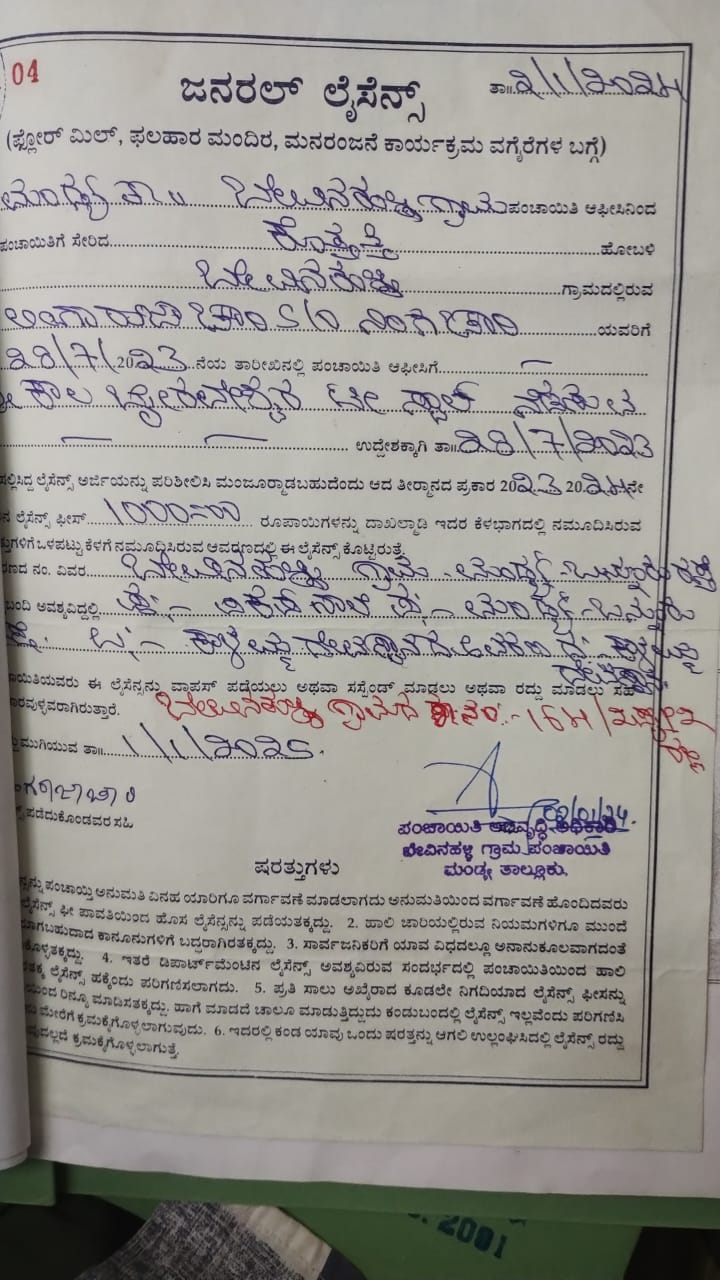 04
ಜನರಲ್ ಲೈಸೆನ್ಸ್
ತಾ॥ 2/1/2024
(ಫ್ಲೋರ್ ಮಿಲ್, ಫಲಹಾರ ಮಂದಿರ, ಮನರಂಜನೆ ಕಾರ್ಯಕ್ರಮ ವಗೈರೆಗಳ ಬಗ್ಗೆ)
ಮಂಡ್ಯ ತಾ॥ ಬೇವಿನಹಳ್ಳಿ ಗ್ರಾಮ ಪಂಚಾಯಿತಿ ಆಫೀಸಿನಿಂದ
ಪಂಚಾಯಿತಿಗೆ ಸೇರಿದ ಕೊತ್ತತ್ತಿ ಹೋಬಳಿ
ಬೇವಿನಹಳ್ಳಿ ಗ್ರಾಮದಲ್ಲಿರುವ
S/o ಯವರಿಗೆ
28/7/2023 ನೆಯ ತಾರೀಖಿನಲ್ಲಿ ಪಂಚಾಯಿತಿ ಆಫೀಸಿಗೆ
ಟೀ ಸ್ಟಾಲ್ ನಡೆಸುವ
ಉದ್ದೇಶಕ್ಕಾಗಿ ತಾ॥ 28/7/2023
ಸಲ್ಲಿಸಿದ್ದ ಲೈಸೆನ್ಸ್ ಅರ್ಜಿಯನ್ನು ಪರಿಶೀಲಿಸಿ ಮಂಜೂರ್ಮಾಡಬಹುದೆಂದು ಆದ ತೀರ್ಮಾನದ ಪ್ರಕಾರ 2023 2024ನೇ
ಲೈಸೆನ್ಸ್ ಫೀಸ್ 1000=00 ರೂಪಾಯಿಗಳನ್ನು ದಾಖಲ್ಮಾಡಿ ಇದರ ಕೆಳಭಾಗದಲ್ಲಿ ನಮೂದಿಸಿರುವ
ಒಳಪಟ್ಟು ಕೆಳಗೆ ನಮೂದಿಸಿರುವ ಆವರಣದಲ್ಲಿ ಈ ಲೈಸೆನ್ಸ್ ಕೊಟ್ಟಿರುತ್ತೆ.
ನಂ. ವಿವರ ಬೇವಿನಹಳ್ಳಿ ಗ್ರಾಮ ಮಂಡ್ಯ-ಬನ್ನೂರು ರಸ್ತೆ
ಬಂದಿ ಅವಶ್ಯವಿದ್ದಲ್ಲಿ ಮಂಡ್ಯ-ಬನ್ನೂರು
ದೇವಸ್ಥಾನ
ಈ ಲೈಸೆನ್ಸನ್ನು ವಾಪಸ್ ಪಡೆಯಲು ಅಥವಾ ಸಸ್ಪೆಂಡ್ ಮಾಡಲು ಅಥವಾ ರದ್ದು ಮಾಡಲು ಸಹ
ಬೇವಿನಹಳ್ಳಿ ಗ್ರಾಮದ
ಮುಗಿಯುವ ತಾ॥ 1/1/2025.
ಪಡೆದುಕೊಂಡವರ ಸಹಿ
02/01/24.
ಪಂಚಾಯಿತಿ ಅಭಿವೃದ್ಧಿ ಅಧಿಕಾರಿ
ಬೇವಿನಹಳ್ಳಿ ಗ್ರಾಮ ಪಂಚಾಯಿತಿ
ಮಂಡ್ಯ ತಾಲ್ಲೂಕು.
ಷರತ್ತುಗಳು
ಪಂಚಾಯ್ತಿ ಅನುಮತಿ ವಿನಹ ಯಾರಿಗೂ ವರ್ಗಾವಣೆ ಮಾಡಲಾಗದು ಅನುಮತಿಯಿಂದ ವರ್ಗಾವಣೆ ಹೊಂದಿದವರು
ಲೈಸೆನ್ಸ್ ಫೀ ಪಾವತಿಯಿಂದ ಹೊಸ ಲೈಸೆನ್ಸನ್ನು ಪಡೆಯತಕ್ಕದ್ದು. 2. ಹಾಲಿ ಜಾರಿಯಲ್ಲಿರುವ ನಿಯಮಗಳಿಗೂ ಮುಂದೆ
ಕಾನೂನುಗಳಿಗೆ ಬದ್ಧರಾಗಿರತಕ್ಕದ್ದು. 3. ಸಾರ್ವಜನಿಕರಿಗೆ ಯಾವ ವಿಧದಲ್ಲೂ ಅನಾನುಕೂಲವಾಗದಂತೆ
4. ಇತರೆ ಡಿಪಾರ್ಟ್‌ಮೆಂಟಿನ ಲೈಸೆನ್ಸ್ ಅವಶ್ಯವಿರುವ ಸಂದರ್ಭದಲ್ಲಿ ಪಂಚಾಯಿತಿಯಿಂದ ಹಾಲಿ
ಲೈಸೆನ್ಸ್ ಹಕ್ಕೆಂದು ಪರಿಗಣಿಸಲಾಗದು. 5. ಪ್ರತಿ ಸಾಲು ಅಖೈರಾದ ಕೂಡಲೇ ನಿಗದಿಯಾದ ಲೈಸೆನ್ಸ್ ಫೀಸನ್ನು
ರಿನ್ಯೂ ಮಾಡಿಸತಕ್ಕದ್ದು. ಹಾಗೆ ಮಾಡದೆ ಚಾಲೂ ಮಾಡುತ್ತಿದ್ದುದು ಕಂಡುಬಂದಲ್ಲಿ ಲೈಸೆನ್ಸ್ ಇಲ್ಲವೆಂದು ಪರಿಗಣಿಸಿ
ಮೇರೆಗೆ ಕ್ರಮಕೈಗೊಳ್ಳಲಾಗುವುದು. 6. ಇದರಲ್ಲಿ ಕಂಡ ಯಾವು ಒಂದು ಷರತ್ತನ್ನು ಆಗಲಿ ಉಲ್ಲಂಘಿಸಿದಲ್ಲಿ ಲೈಸೆನ್ಸ್ ರದ್ದು
ಕ್ರಮಕೈಗೊಳ್ಳಲಾಗುತ್ತೆ.
2001